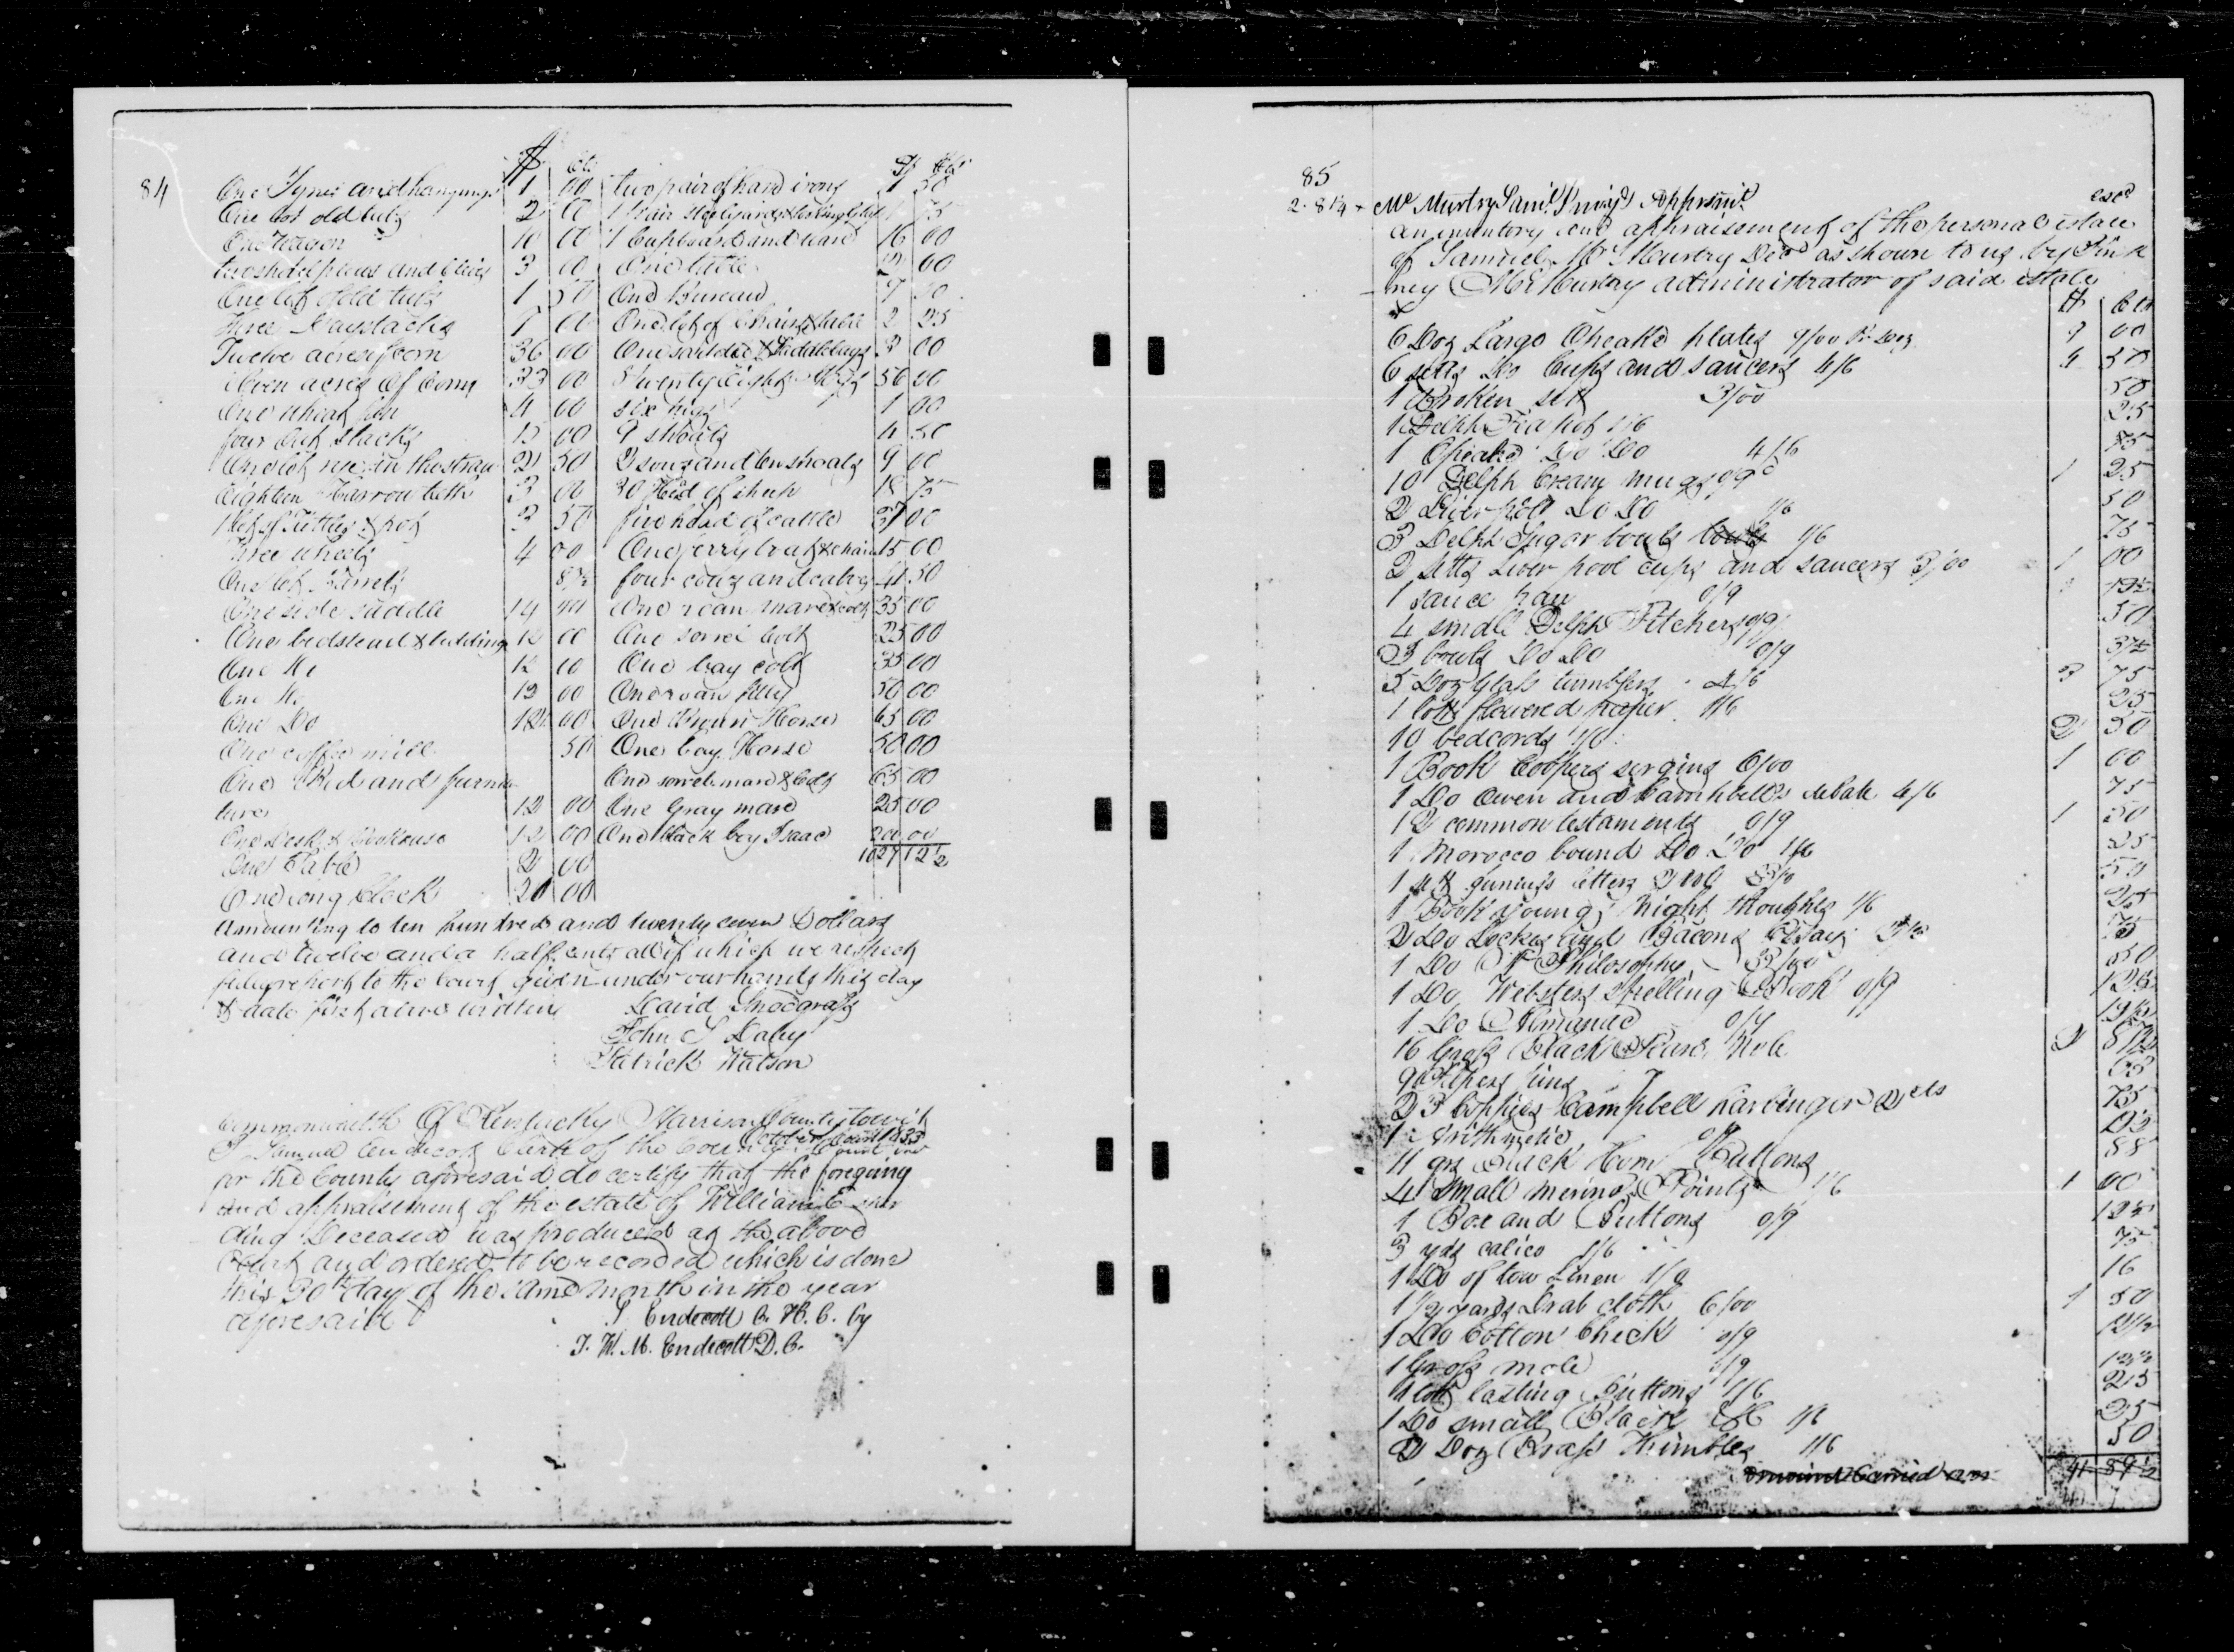 84
$ Cts $ Cts
One and hangings 1 00 two pair of hand irons 1 50
One lot old tubs 2 00 1 pair Stilyards & looking glass 1 75
One Wagon 10 00 1 Cupboard and ware 16 00
two shovel plows and Clivis 3 00 One table 2 00
One lot of old tubs 1 50 One Bureau 7 50
three Haystacks 7 00 One lot of Chairs & table 2 25
Twelve acres of corn 36 00 One saddle & Saddlebags 3 00
Eleven acres of Corn 33 00 twenty Eight Hogs 56 00
One wheat fan 4 00 six hogs 1 00
four stacks 15 00 9 shoats 4 50
One lot rye in the straw 2 50 2 sows and ten shoats 9 00
Eighteen Harrow teeth 3 00 30 Hed of sheep 18 75
1 lot of Kittles & pot 3 50 five head of cattle 37 00
three wheels 4 00 One ferry boat & chain 15 00
One lot Barrels 87½ four cows and calves 41 50
One side saddle 14 00 One roan mare & colt 35 00
One bedstead & bedding 12 00 One sorrel colt 25 00
One 12 00 One bay colt 35 00
One 12 00 One roan filly 50 00
One Do 12 00 One Brown Horse 65 00
One coffee mill 50 One bay Horse 50 00
One Bed and furni One sorrel mare & Colt 65 00
ture 12 00 One Gray mare 25 00
One Desk & Bookcase 12 00 One black boy Isaac 200 00
One Table 2 00 1027 12½
One long Clock 20 00
Amounting to ten hundred and twenty seven Dollars
and twelve and a half cents all of which we respect
fully report to the Court given under our hands this day
& date first above written David Snodgrass
John S Daley
Patrick Watson
Commonwealth Of Kentucky Harrison County towit
October Court 1833
I Samuel Endicott Clerk of the County Court
for the County aforesaid do certify that the foregoing
and appraisement of the estate of William E
ding Deceased was produced at the above
Court and ordered to be recorded which is done
this 30th day of the same month in the year
aforesaid S Endicott C. H. C. by
J. W. M. Endicott D. C.
85
Mc Murtry Saml Appraismt exd
an inventory and appraisement of the personal estate
of Samuel Mc Murtry Decd as shown to us by Pink
ney Mc Murtry administrator of said estate
$ Cts
6 Doz Large plates 9/00 Pr Doz 9 00
6 setts Do Cups and saucers 4/6 4 50
1 Broken set 3/00 50
1 Delph Tea pot 1/6 25
1 Do Do 4/6 75
10 Delph Cream mugs 0/9 1 25
2 Liverpool Do Do 1/6 50
3 Delph Sugar bouls 1/6 75
2 setts Liver pool cups and saucers 3/00 1 00
1 sauce pan 0/9 12½
4 small Delph Pitchers 0/9 50
3 bouls Do Do 0/9 37½
5 Doz Glass tumblers 4/6 3 75
1 lott flowered paper 1/6 25
10 bedcords 1/6 2 50
1 Book Coopers surgins 6/00 1 00
1 Do Owen and Cambhells debate 4/6 75
12 common testaments 0/9 1 50
1 Morocco bound Do Do 1/6 25
1 sett letters 2 vol 50
1 Book Young's Night thoughts 1/6 25
2 Do Lockes and Bacons Essays 75
1 Do Philosophy 50
1 Do Websters Spelling Book 0/9 12½
1 Do Almanac
16 Gross Black 2
Papers pins 63
23 Coppies Campbell harbinger 2 cts 75
1 arithmetic
11 grs Black Horn Buttons 88
4 small merino Points 1/6 1 00
1 Box and Buttons 0/9 12½
3 yds calico 1/6 75
1 Do of tow Linen 1/0 16
1½ yards Drab cloth 6/00 1 50
1 Do Cotton Check 0/9 12½
1 Gross mole 0/9 12½
1 lott lasting Buttons 1/6 25
1 Do small Black 1/6 25
2 Doz Brass Thimbles 1/6 50
amount Carried over 41 89½